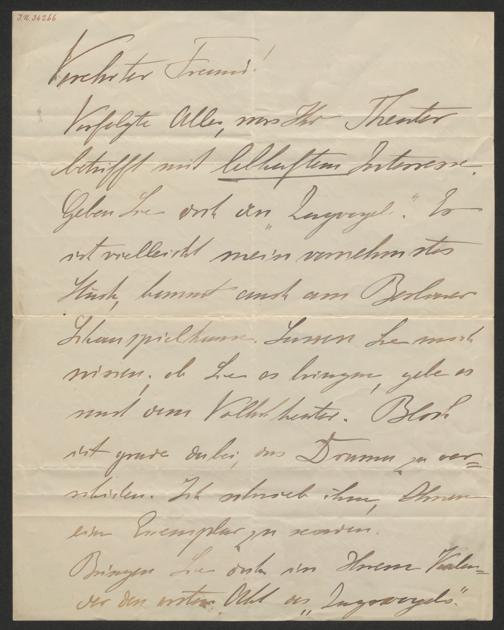 J.N. 34266
Verehrter Freund!
Verfolgte Alles, was Ihr Theater
betrifft mit lebhaftem Interesse.
Geben Sie doch den „Zugvogel“. Es
ist vielleicht mein vornehmstes
Stück, kommt auch am Berliner
Schauspielhause. Lassen Sie mich
wissen, ob Sie es bringen, gebe es
und dem Volkstheater. Bloch
ist grade dabei, das Drama zu ver=
schicken. Ich schrieb ihm, Ihnen
ein Exemplar zu senden.
Bringen Sie doch in Ihrem Kalen=
der den ersten Akt des „Zugvogels“.